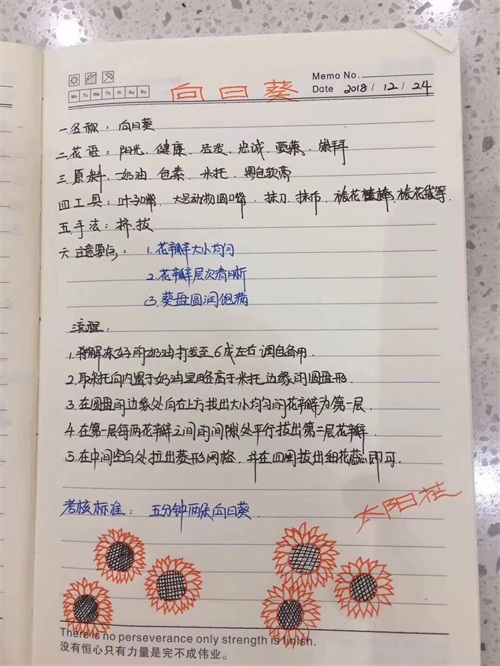 Memo No.
Mo Tu We Th Fr Sa Su
Date 2018 / 12 / 24
向日葵
一名称：向日葵
二花语：阳光、健康、活发、忠诚、爱慕、崇拜
三原料：奶油 色素、米托、调色软膏
四工具：叶子嘴、大号动物圆嘴、抹刀、抹布、裱花棒，裱花袋等.
五手法：挤，拔
六注意要点：1.花瓣大小均匀
2.花瓣层次清晰
3.葵盘圆润饱满
流程：
1.将解冻好的奶油打发至6成左右调色备用.
2.取米托向内置于奶油里略高于米托边缘的圆盘形.
3.在圆盘的边缘处向右上方拔出大小均匀的花瓣为第一层.
4.在第一层每两花瓣之间的间隙处平行拔出第二层花瓣
5.在中间空白处拉出菱形网格，并在四周拔出细花蕊即可.
考核标准：五分钟两朵向日葵.
太阳花
There is no perseverance only strength is finish.
没有恒心只有力量是完不成伟业。